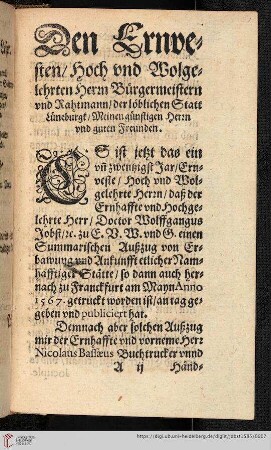 Den Ernve-
sten/ Hoch vnd Wolge-
lehrten Herrn Bürgermeistern
vnd Rahtmann/ der löblichen Statt
Lüneburgk/ Meinen günstigen Herrn
vnd guten Freunden.
ES ist jetzt das ein
vñ zwentzigst Jar/ Ern-
veste / Hoch vnd Wol-
gelehrte Herrn/ daß der
Ernhaffte vnd Hochge-
lehrte Herr/ Doctor Wolffgangus
Jobst/ ꝛc. zu E. V. W. vnd G. einen
Summarischen Außzug von Er-
bawung vnd Ankunfft etlicher Nam-
hafftiger Stätte/ so dann auch her-
nach zu Franckfurt am Mayn Anno
1567. getruckt worden ist/ an tag ge-
geben vnd publiciert hat.
Demnach aber solchen Außzug
mir der Ernhaffte vnd vorneme Herr
Nicolaus Bassæus Buchtrucker vnnd
A ij Händ-
http://digi.ub.uni-heidelberg.de/diglit/jobst1585/0007